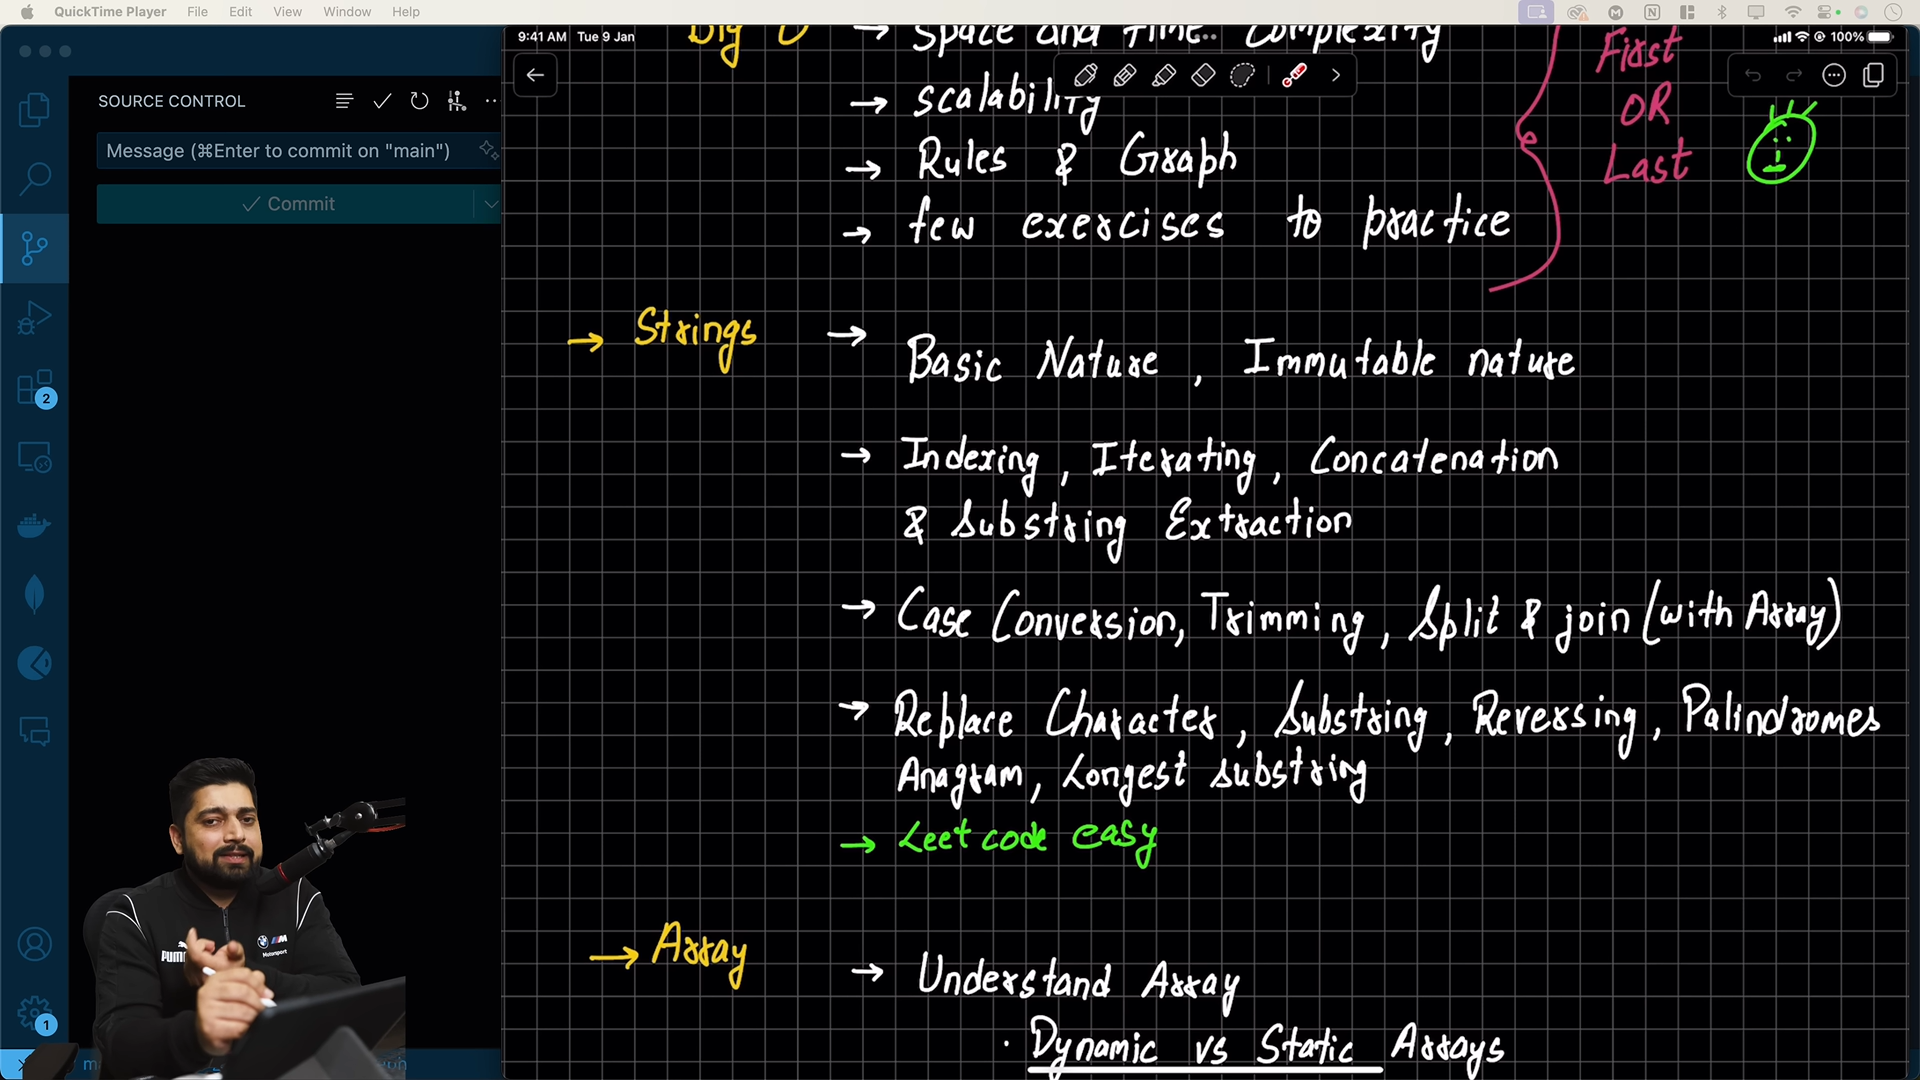 QuickTime Player File Edit View Window Help
9:41 AM Tue 9 Jan
100%
SOURCE CONTROL
Message (⌘Enter to commit on "main")
Commit
2
1
Big O → Space and Time Complexity
→ scalability
→ Rules & Graph
→ few exercises to practice
First
OR
Last
→ Strings → Basic Nature, Immutable nature
→ Indexing, Iterating, Concatenation
& Substring Extraction
→ Case Conversion, Trimming, Split & join (with Array)
→ Replace Character, Substring, Reversing, Palindromes
Anagram, Longest substring
→ Leet code easy
→ Array → Understand Array
· Dynamic vs Static Arrays
PUMA
M
Motorsport